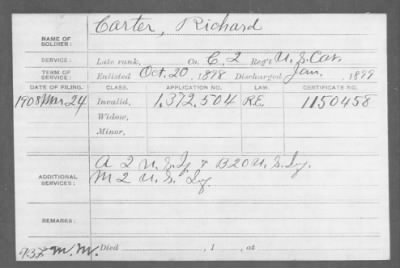 Carter, Richard
NAME OF
SOLDIER:
SERVICE: Late rank, Co. C, 2 Reg't U.S. Cav.
TERM OF
SERVICE: Enlisted Oct. 20, 1898 Discharged Jan., 1899
DATE OF FILING. CLASS. APPLICATION NO. LAW. CERTIFICATE NO.
1908 Mar 24 Invalid, 1,372,504 R.E. 1150458
Widow,
Minor,
ADDITIONAL
SERVICES:
A 2 U.S. Inf. & B 20 U.S. Inf.
M 2 U.S. Inf.
REMARKS:
M.M. Died , 1 , at